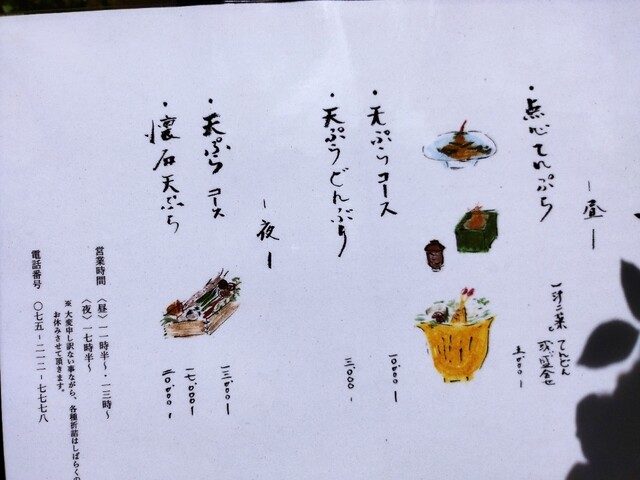 －昼－
・点心てんぷら
一汁二菜 てんどん
五、〇〇〇－
・天ぷらコース
一〇、〇〇〇－
・天ぷらどんぶり
三、〇〇〇－
－夜－
・天ぷらコース
一三、〇〇〇－
一七、〇〇〇－
・懐石天ぷら
二〇、〇〇〇－
営業時間 〈昼〉一一時半～・一三時～
〈夜〉一七時半～
※大変申し訳ない事ながら、各種折詰はしばらくの
お休みさせて頂きます。
電話番号 〇七五－二一二－七七七八